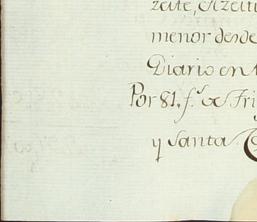 zeite, Azeitu
menor desde
Diario en
Por 81. f.s de Tri
y Santa